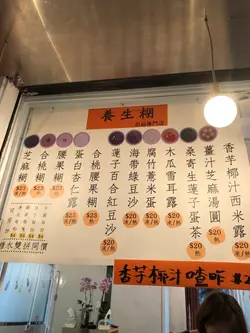 養生糊
專門店
香芋椰汁西米露
薑汁芝麻湯圓
$20
熱
桑寄生蓮子蛋茶
$20
熱
木瓜雪耳露
$20
腐竹薏米蛋
$20
熱
海帶綠豆沙
$20
蓮子百合紅豆沙
$20
合桃腰果糊
$23
熱
蛋白杏仁露
$23
腰果糊
$23
合桃糊
$23
芝麻糊
$23
水雙拼同價
香芋椰汁喳咋